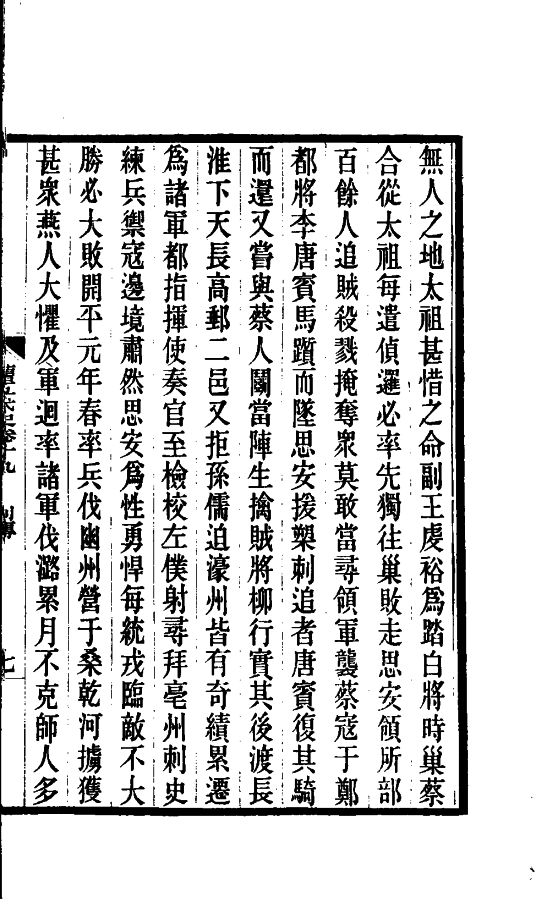 無人之地太祖甚惜之命副王虔裕爲踏白將時巢蔡
合從太祖每遣偵邏必率先獨往巢敗走思安領所部
百餘人追賊殺戮掩奪衆莫敢當尋領軍襲蔡寇于鄭
都將李唐賓馬躓而墜思安援槊刺追者唐賓復其騎
而還又嘗與蔡人鬭當陣生擒賊將柳行實其後渡長
淮下天長高郵二邑又拒孫儒迫濠州皆有奇績累遷
爲諸軍都指揮使奏官至檢校左僕射尋拜亳州刺史
練兵禦寇邊境肅然思安爲性勇悍每統戎臨敵不大
勝必大敗開平元年春率兵伐幽州營于桑乾河擄獲
甚衆燕人大懼及軍迴率諸軍伐潞累月不克師人多
列傳
七